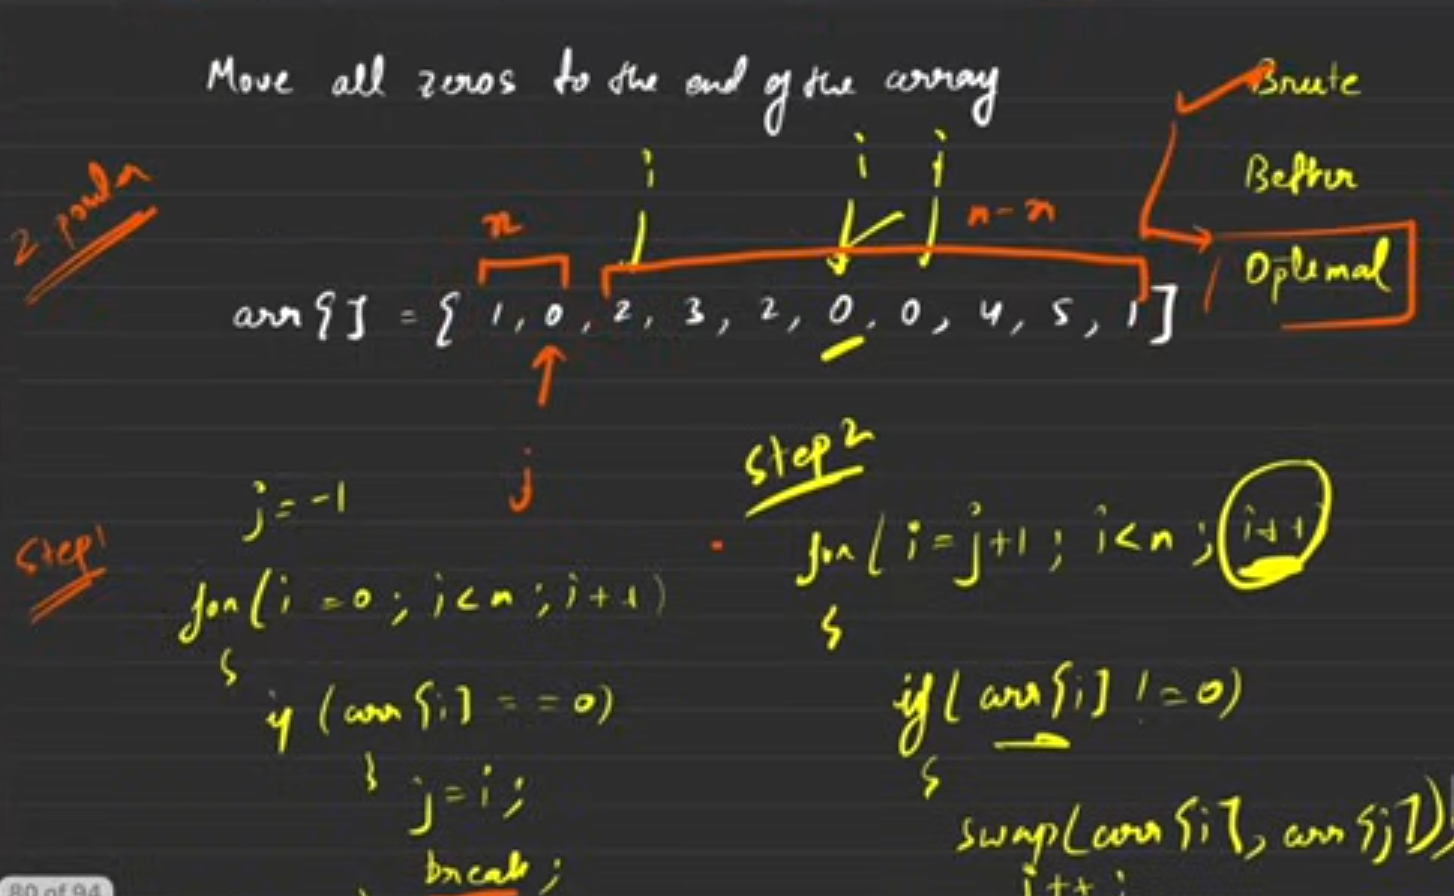 Move all zeros to the end of the array
Brute
Better
Optimal
2-pointer
i
i
j
x
n-x
arr[] = { 1, 0, 2, 3, 2, 0, 0, 4, 5, 1 ]
j
Step1
j = -1
for(i = 0; i<n; i++)
{
if (arr[i] == 0)
{
j = i;
break;
Step 2
for( i = j+1 ; i<n ; i++
{
if( arr[i] != 0)
{
swap(arr[i], arr[j])
j++;
80 of 94